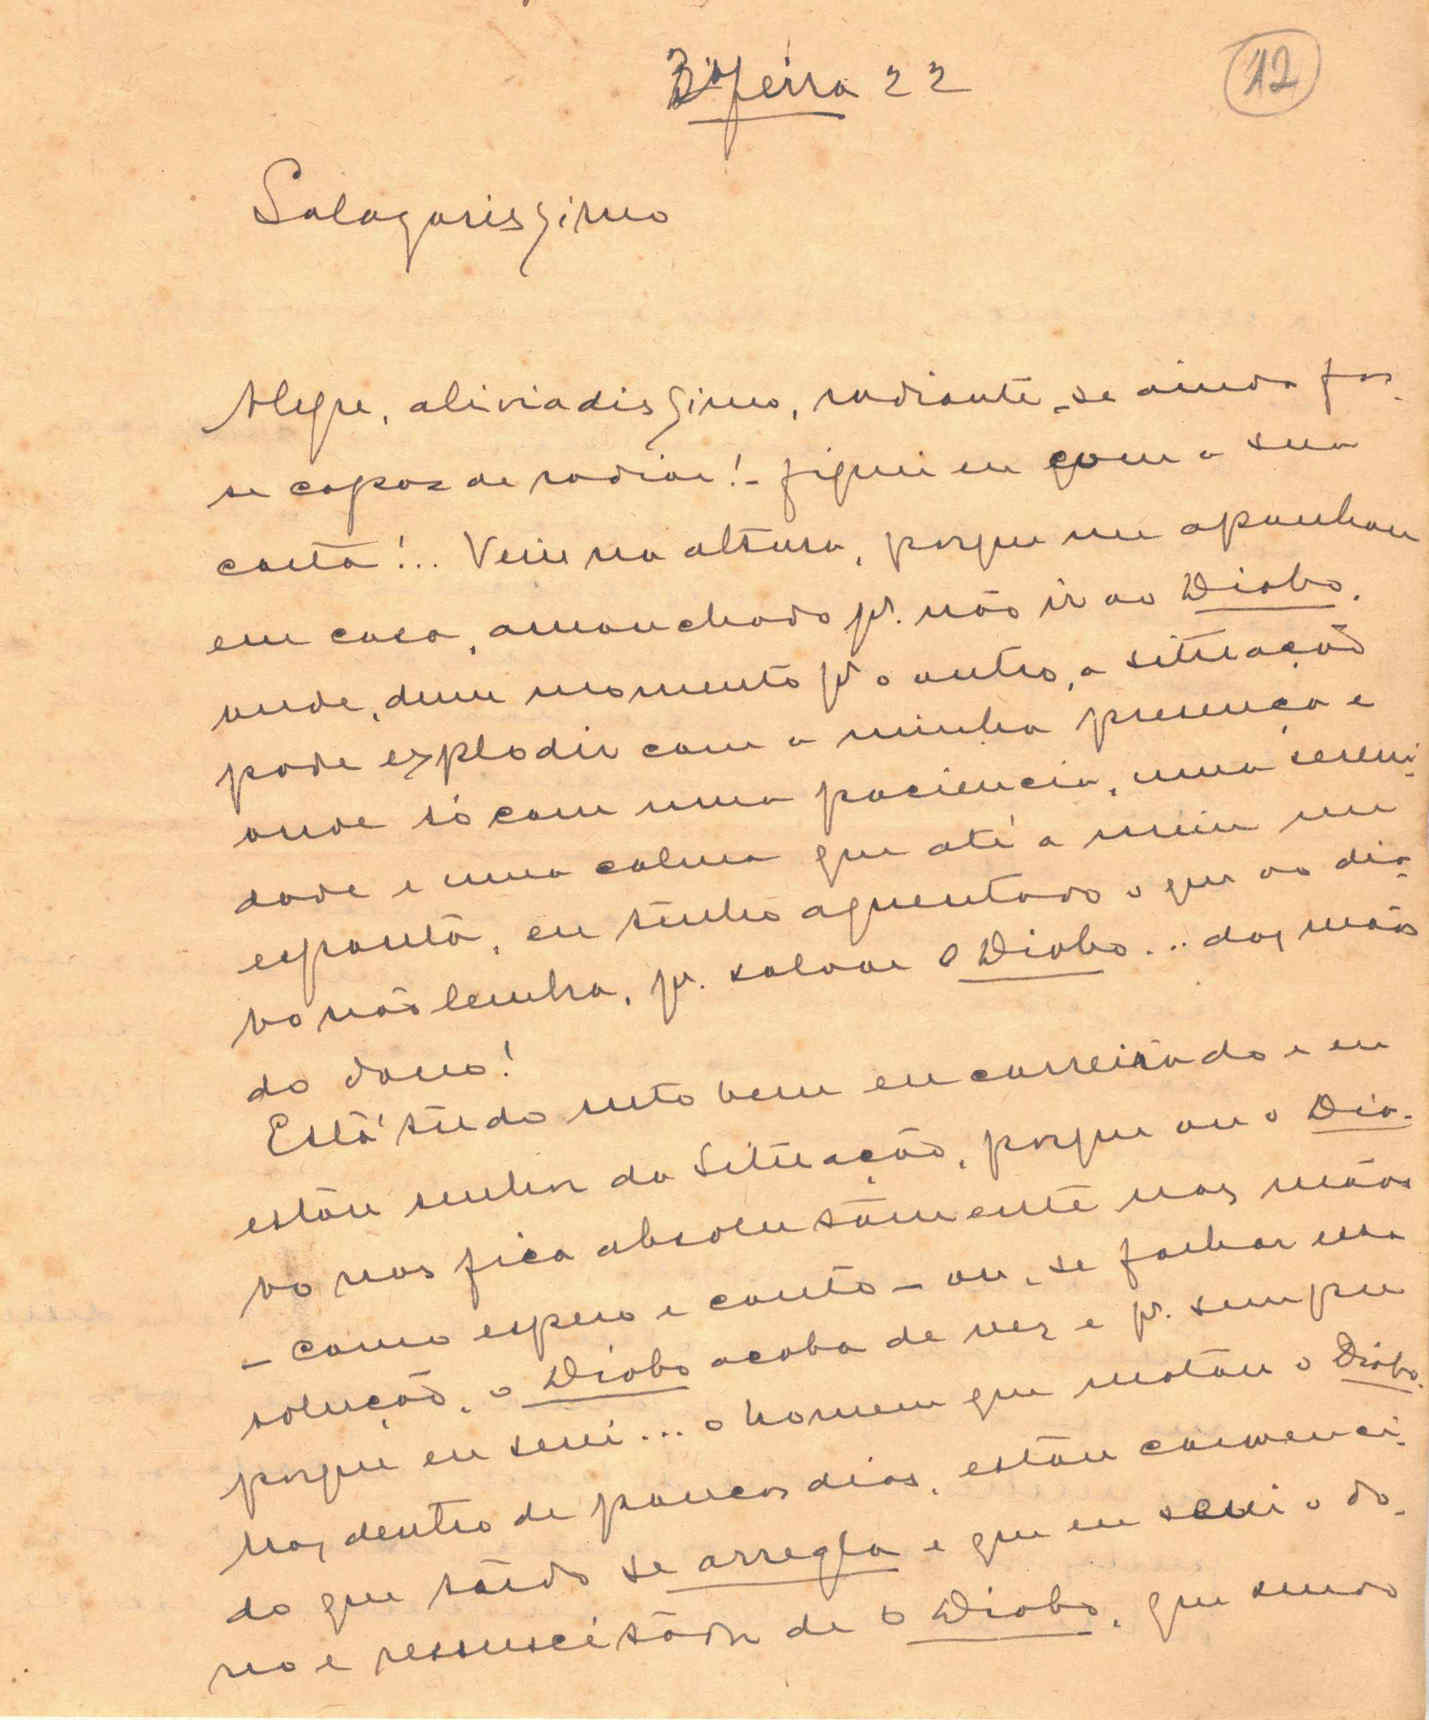 3ª feira 22
12
Salazarissimo
Alegre, aliviadissimo, radiante - se ainda fos-
se capaz de radiar! - fiquei eu com a sua
carta!.. Veiu na altura, porque me apanhou
em casa, amanchado pª. não ir ao Diabo,
onde, dum momento pª o outro, a situação
pode explodir com a minha presença e
onde só com uma paciencia, uma sereni-
dade e uma calma que até a mim me
espanta, eu tenho aguentado o que ao dia-
bo não lembra, pª. salvar O Diabo... das mãos
do dono!
Está tudo mto bem encarreirado e eu
estou senhor da situação, porque ou o Dia-
bo nos fica absolutamente nas mãos
- como espero e conto - ou, se falhar essa
solução, o Diabo acaba de vez e pª. sempre
porque eu serei... o homem que matou o Diabo.
Mas, dentro de poucos dias, estou convenci-
do que tudo se arregla e que eu serei o do-
no e ressuscitador de O Diabo, que sendo